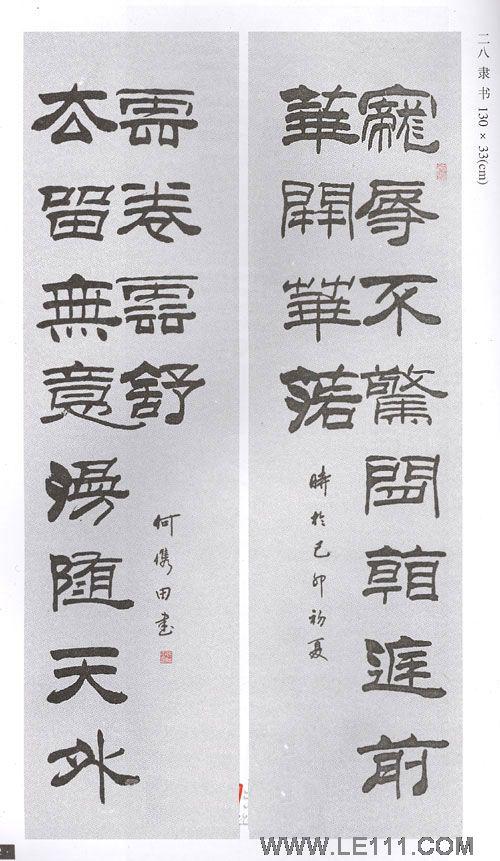 二八 隶书 130×33(cm)
寵辱不驚閒看庭前
華開華落
時於己卯初夏
去留無意漫隨天外
雲卷雲舒
何儁田書
WWW.LE111.COM